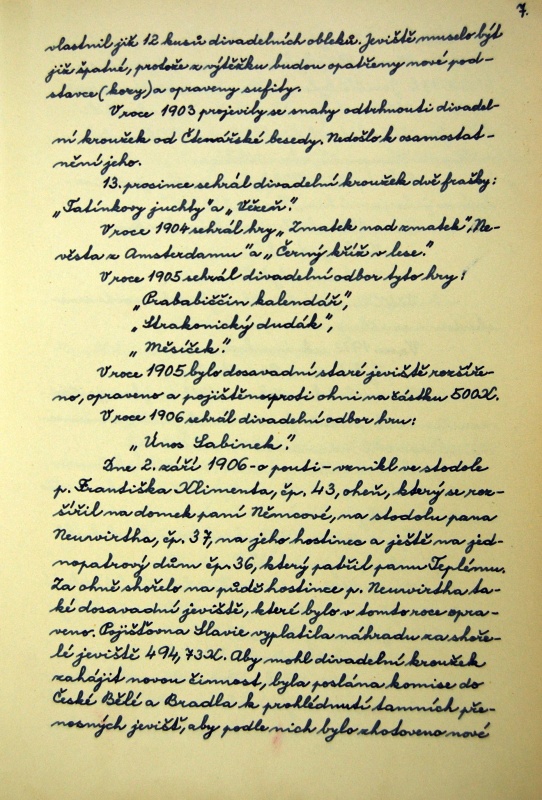 7.
vlastnil již 12 kusů divadelních obleků. Jeviště muselo být
již špatné, protože z výtěžku budou opatřeny nové pod-
stavce (kozy) a opraveny sufity.
V roce 1903 projevily se snahy odtrhnouti divadel-
ní kroužek od Čtenářské besedy. Nedošlo k osamostat-
nění jeho.
13. prosince sehrál divadelní kroužek dvě frašky:
„Tatínkovy juchty" a „Vězeň".
V roce 1904 sehrál hry „Zmatek nad zmatek", „Ne-
věsta z Amsterdamu" a „Černý kříž v lese".
V roce 1905 sehrál divadelní odbor tyto hry:
„Prababiččin kalendář",
„Strakonický dudák",
„Měsíček".
V roce 1905 bylo dosavadní staré jeviště rozšíře-
no, opraveno a pojištěno proti ohni na částku 500K.
V roce 1906 sehrál divadelní odbor hru:
„Únos Sabinek".
Dne 2. září 1906 - o pouti - vznikl ve stodole
p. Františka Klimenta, čp. 43, oheň, který se roz-
šířil na domek paní Němcové, na stodolu pana
Neuvirtha, čp. 37, na jeho hostinec a ještě na jed-
nopatrový dům čp. 36, který patřil panu Teplému.
Za ohně shořelo na půdě hostince p. Neuvirtha ta-
ké dosavadní jeviště, které bylo v tomto roce opra-
veno. Pojišťovna Slavie vyplatila náhradu za shoře-
lé jeviště 494,73K. Aby mohl divadelní kroužek
zahájit novou činnost, byla poslána komise do
České Bělé a Bradla k prohlédnutí tamních pře-
nosných jevišť, aby podle nich bylo zhotoveno nové